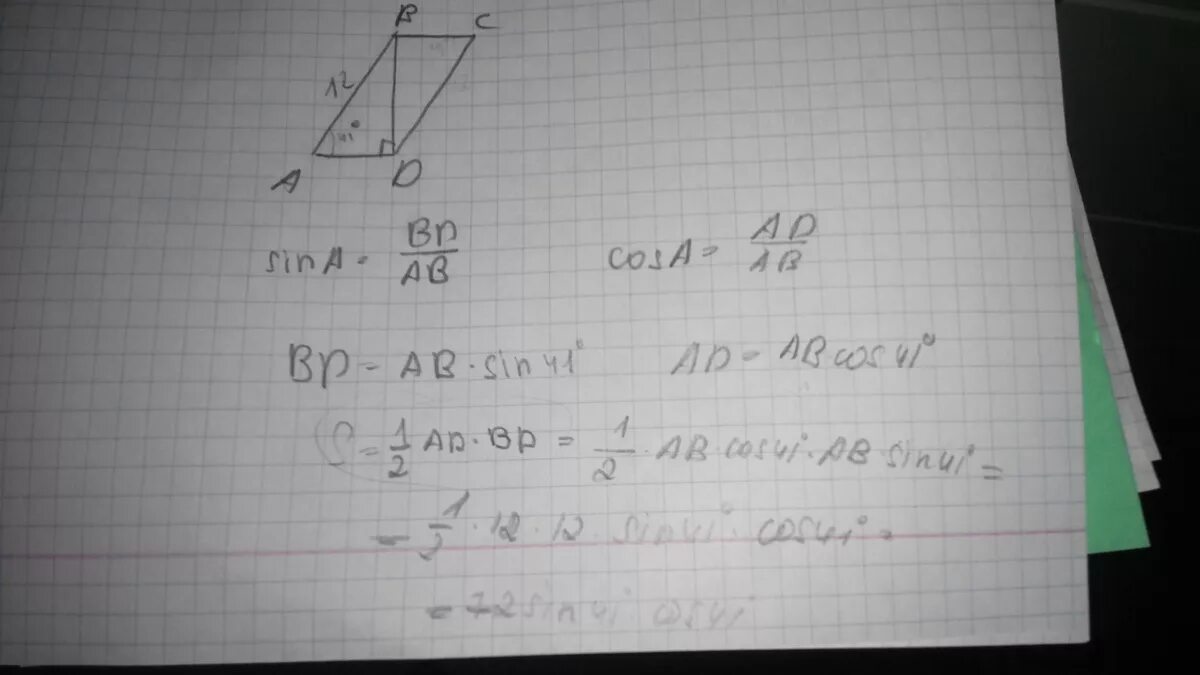 B C
12
41°
A D
sinA = BD/AB cosA = AD/AB
BD = AB · sin41° AD = AB cos41°
S = 1/2 AD · BD = 1/2 · AB cos41° · AB sin41° =
= 1/2 · 12 · 12 · sin41° · cos41° =
= 72 sin41° cos41°